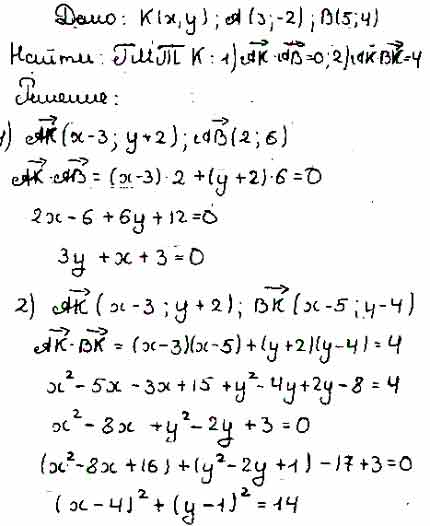 Дано: K(x,y); A(3;-2); B(5;4)
Найти: ГМТ K: 1) AK⃗·AB⃗=0; 2) AK⃗·BK⃗=4
Решение:
1) AK⃗(x-3; y+2); AB⃗(2; 6)
AK⃗·AB⃗ = (x-3)·2 + (y+2)·6 = 0
2x - 6 + 6y + 12 = 0
3y + x + 3 = 0
2) AK⃗(x-3; y+2); BK⃗(x-5; y-4)
AK⃗·BK⃗ = (x-3)(x-5) + (y+2)(y-4) = 4
x² - 5x - 3x + 15 + y² - 4y + 2y - 8 = 4
x² - 8x + y² - 2y + 3 = 0
(x² - 8x + 16) + (y² - 2y + 1) - 17 + 3 = 0
(x-4)² + (y-1)² = 14